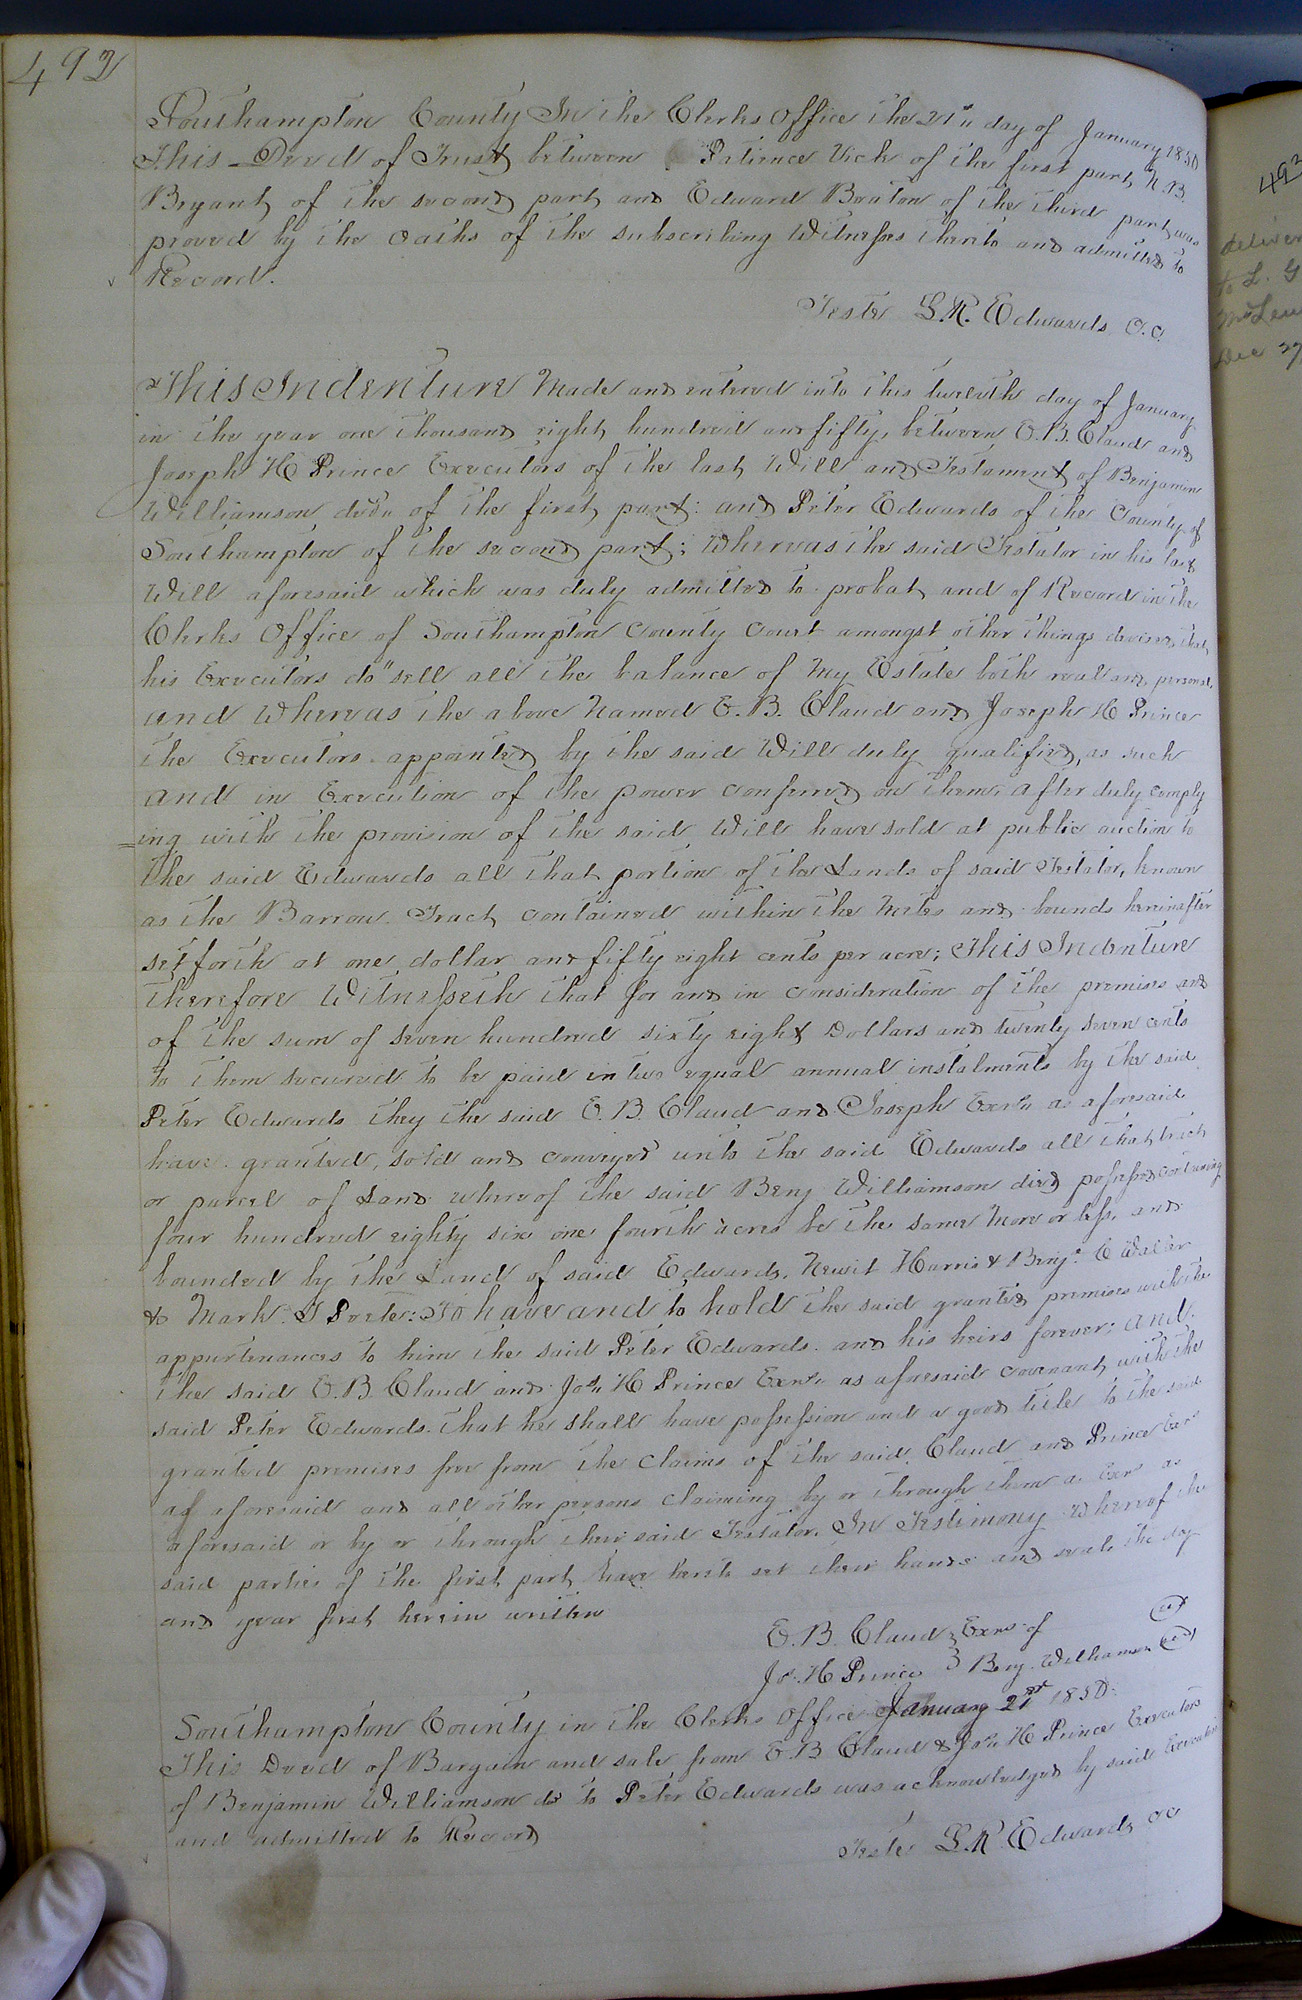 492
Southampton County In the Clerks Office the 21st day of January 1850
This Deed of Trust between Patience Vick of the first part, N. B.
Bryant of the second part and Edward Beaton of the third part was
proved by the oaths of the subscribing Witnesses thereto and admitted to
Record.
Teste L. R. Edwards C.C.
This Indenture Made and entered into this twelvth day of January
in the year one thousand eight hundred and fifty, between E. B. Claud and
Joseph H Prince Executors of the last Will and Testament of Benjamin
Williamson decd. of the first part: and Peter Edwards of the County of
Southampton of the second part; Whereas the said Testator in his last
Will aforesaid which was duly admitted to probat and of Record in the
Clerks Office of Southampton County Court amongst other things devises, that
his Executors do "sell all the balance of my Estate both real and personal.
and Whereas the above Named E. B. Claud and Joseph H Prince
the Executors appointed by the said Will duly qualified, as such
and in Execution of the power conferred on them, after duly comply
=ing with the provision of the said Will have sold at public auction to
the said Edwards all that portion of the Lands of said Testator, known
as the Barrow Tract contained within the Metes and bounds hereinafter
set forth at one dollar and fifty eight cents per acre; This Indenture
therefore Witnesseth that for and in consideration of the premises and
of the sum of Seven hundred sixty eight Dollars and twenty seven cents
to them secured to be paid in two equal annual instalments by the said
Peter Edwards they the said E. B. Claud and Joseph Exrs. as aforesaid
have granted, sold and conveyed unto the said Edwards all that tract
or parcel of Land whereof the said Benj Williamson died possessed, containing
four hundred eighty six one fourth acres be the same More or less, and
bounded by the Land of said Edwards, Newit Harris & Benjn. C Waller
& Mark : To have and to hold the said granted premises with the
appurtenances to him the said Peter Edwards. and his heirs forever; and
the said E. B Claud and Jos. H Prince Exrs. as aforesaid covenant, with the
said Peter Edwards. that he shall have possession and a good title to the said
granted premises free from the claims of the said Claud and Prince Exrs
as aforesaid and all other persons claiming by or through them as Exrs as
aforesaid or by or through their said Testator. In Testimony Whereof the
said parties of the first part, have hereto set their hands and seals the day
and year first herein written
E. B. Claud } Exrs of (seal)
Jos. H Prince } Benj. Williamson (seal)
Southampton County in the Clerks Office January 21st 1850.
This Deed of Bargain and sale from E B Claud & Jos. H Prince Executors
of Benjamin Williamson dd to Peter Edwards was acknowledged by said Executors
and admitted to Record
Teste L. R. Edwards CC
492
deliver
to L. G
Dec 27